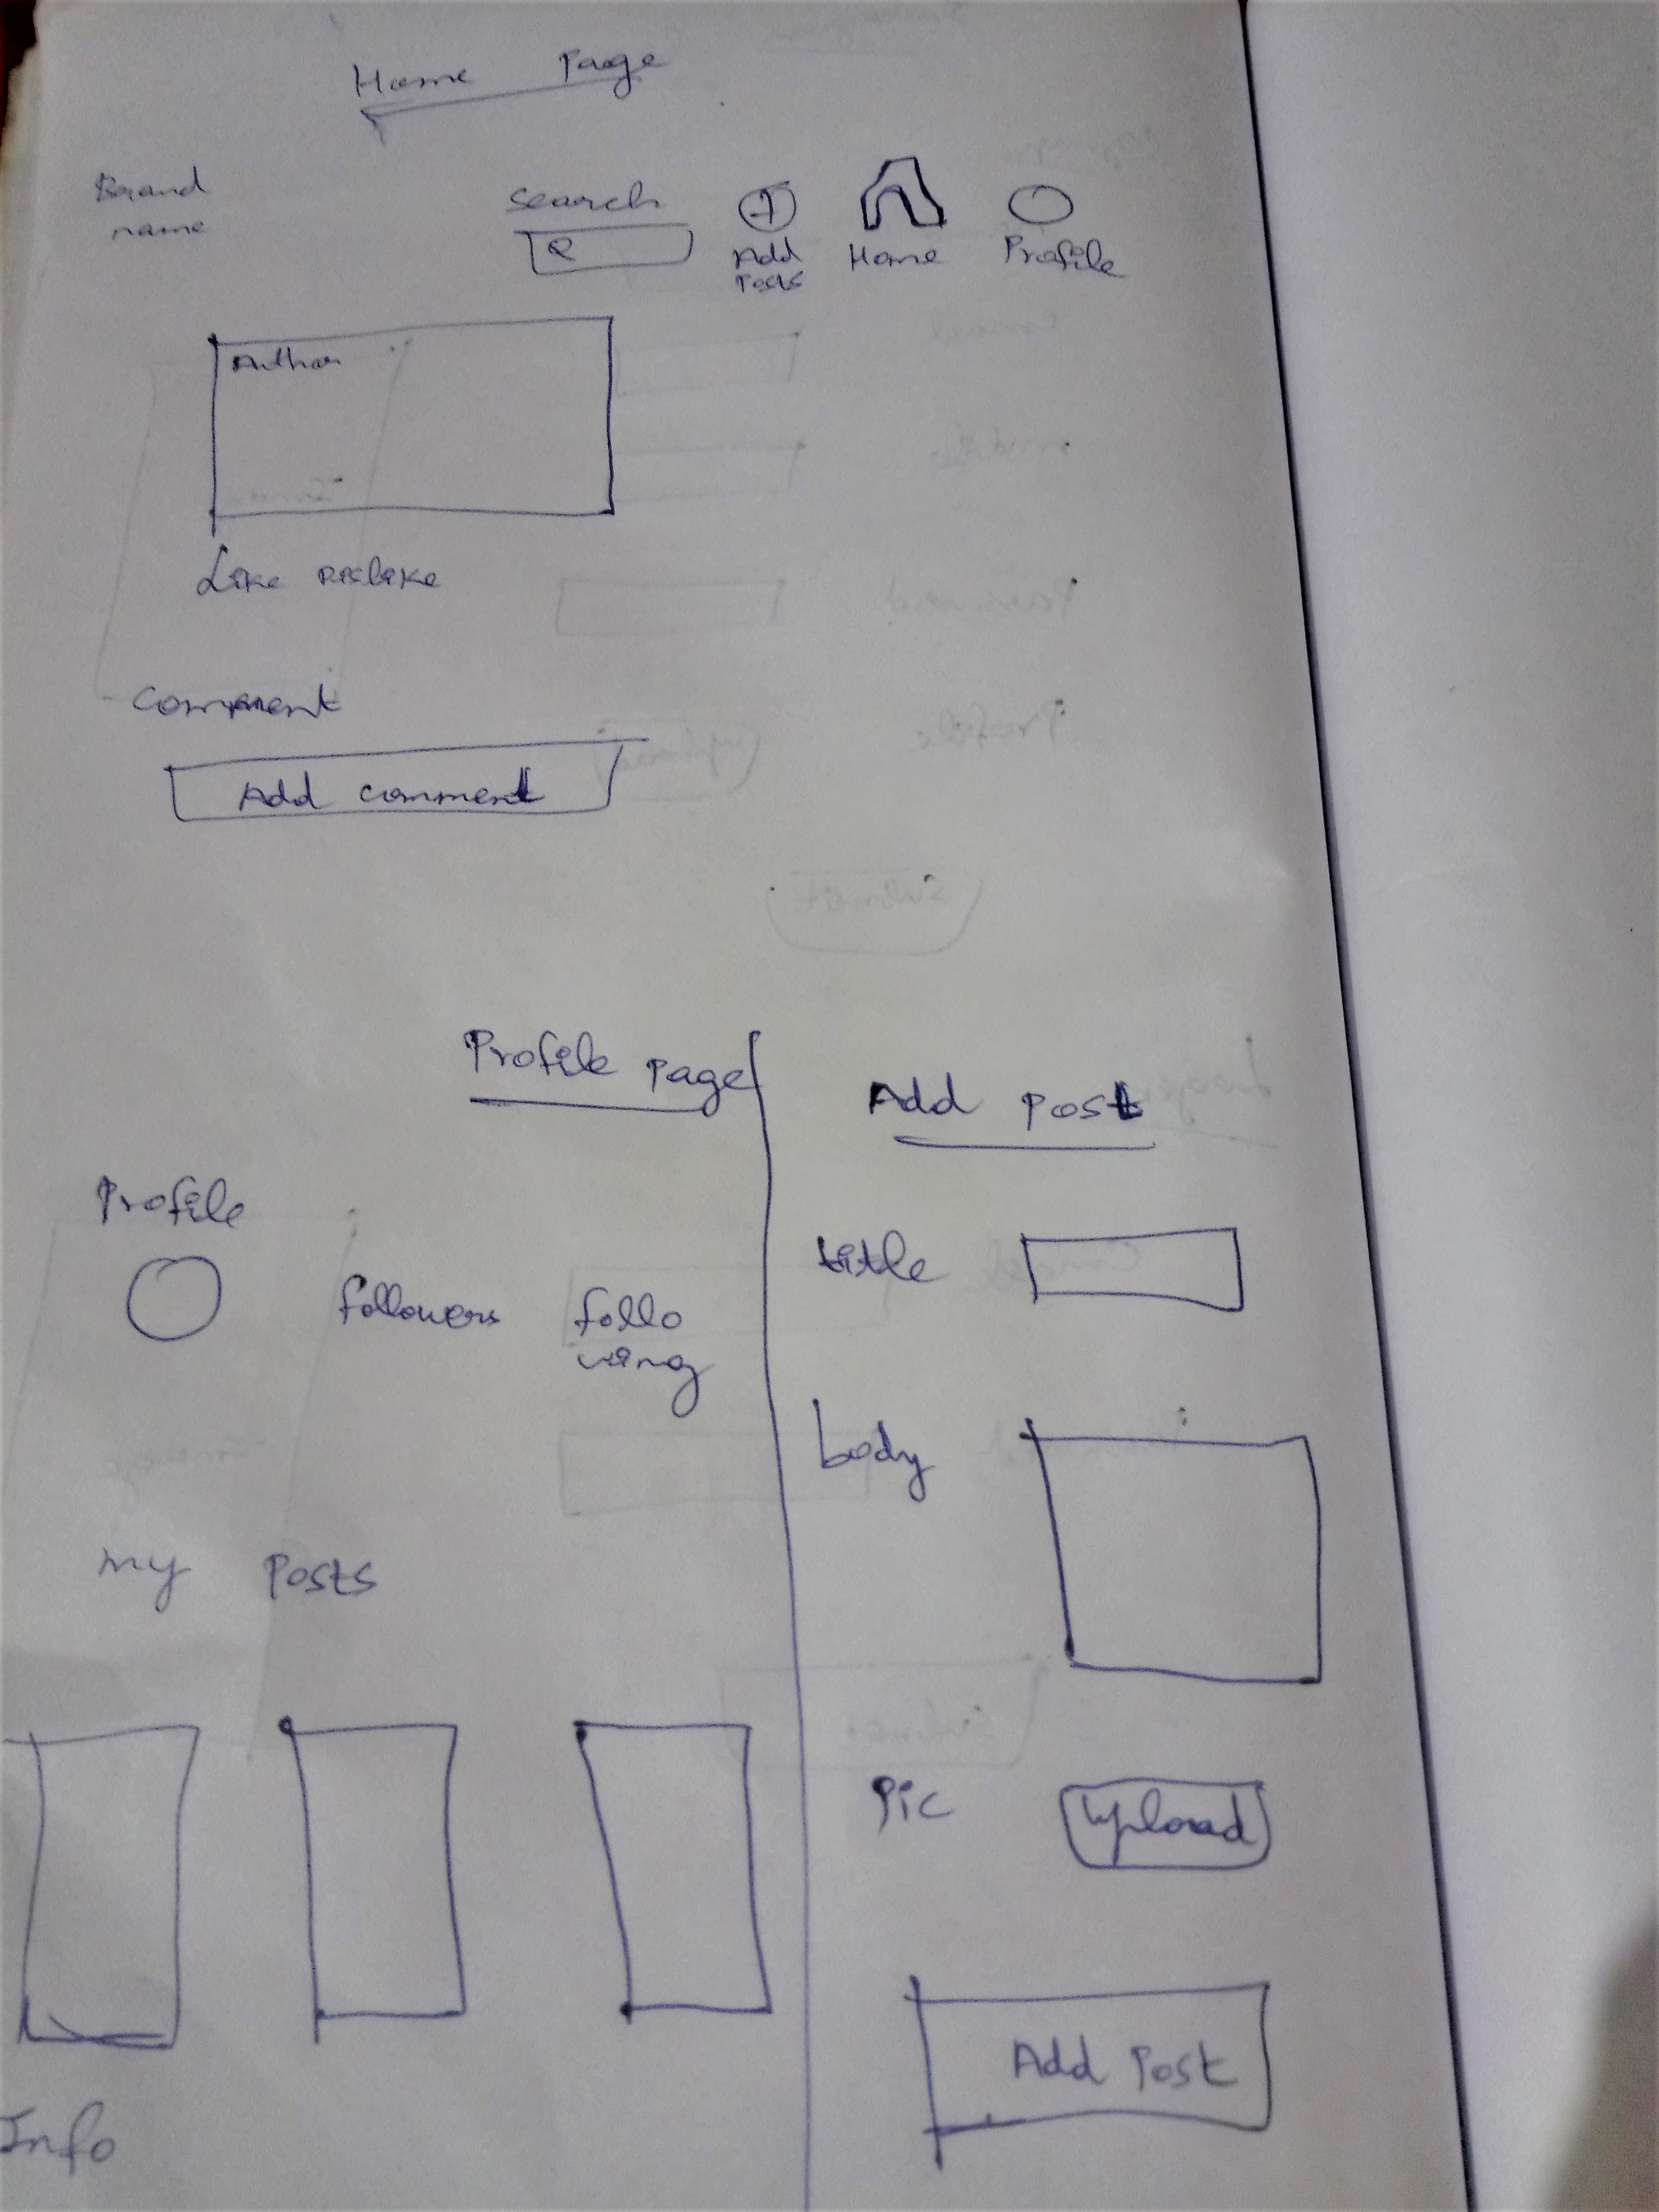 Home Page
Brand
name
Search
Add
Posts
Home
Profile
Author
Like Dislike
Comment
Add comment
Profile Page
Profile
followers
follo
wing
my Posts
Info
Add post
title
body
Pic
Upload
Add Post